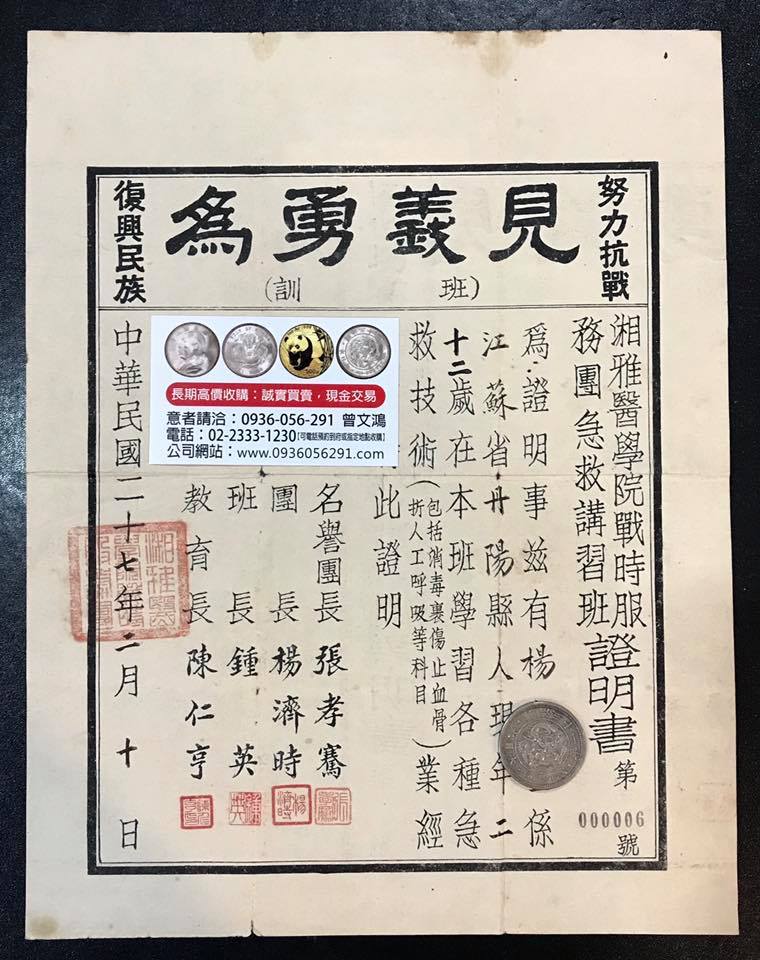 努力抗戰
見義勇為
(班訓)
復興民族
湘雅醫學院戰時服
務團急救講習班證明書
第000006號
為證明事茲有楊 係
江蘇省丹陽縣人現年二
十二歲在本班學習各種急
救技術(包括消毒裹傷止血骨
折人工呼吸等科目)業經
此證明
名譽團長張孝騫
團長楊濟時
班長鍾英
教育長陳仁亨
中華民國二十七年二月十日
長期高價收購：誠實買賣，現金交易
意者請洽：0936-056-291 曾文鴻
電話：02-2333-1230【可電話預約到府或指定地點收購】
公司網站：www.0936056291.com